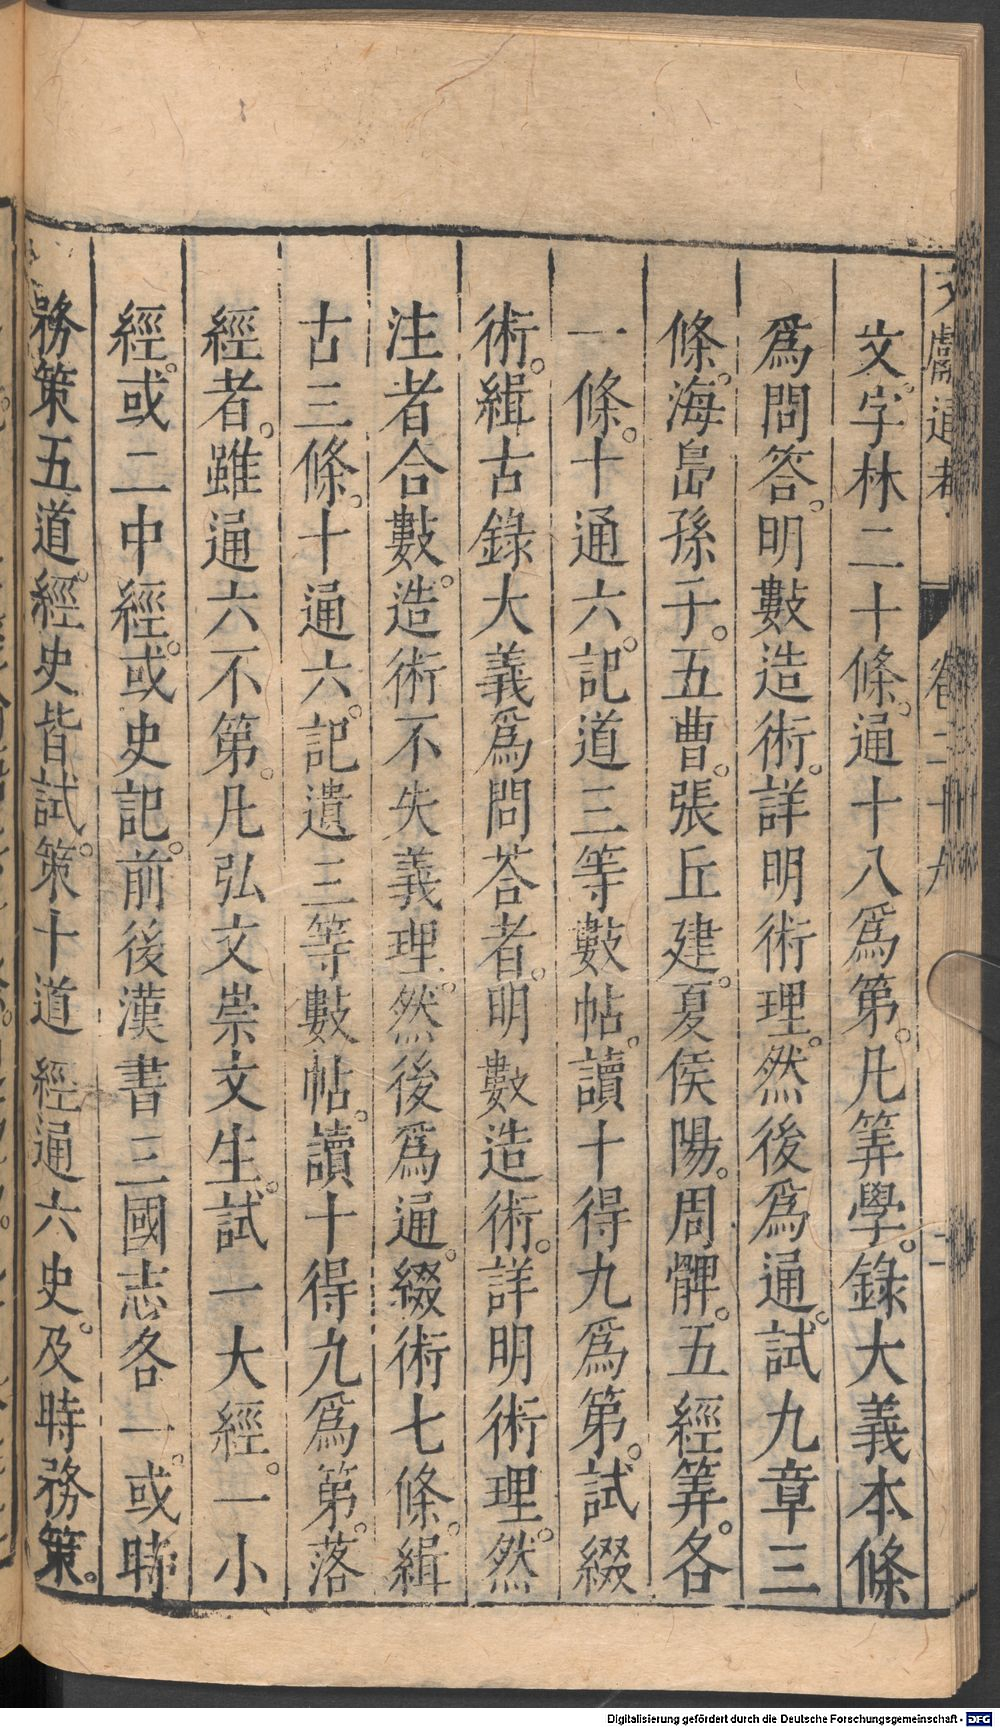 文獻通考 卷二十九 二
文字林二十條。通十八爲第。凡筭學。錄大義本條
爲問答。明數造術。詳明術理。然後爲通。試九章三
條。海島孫子。五曹。張丘建。夏侯陽。周髀。五經筭。各
一條。十通六。記道三等數帖。讀十得九爲第。試綴
術。緝古錄大義爲問荅者。明數造術。詳明術理。然
注者合數。造術不失義理。然後爲通。綴術七條。緝
古三條。十通六。記遺三等數帖。讀十得九爲第。落
經者。雖通六不第。凡弘文崇文生。試一大經。一小
經。或二中經。或史記。前後漢書三國志各一。或時
務策五道。經史皆試。策十道經通六史。及時務策。
Digitalisierung gefördert durch die Deutsche Forschungsgemeinschaft - DFG